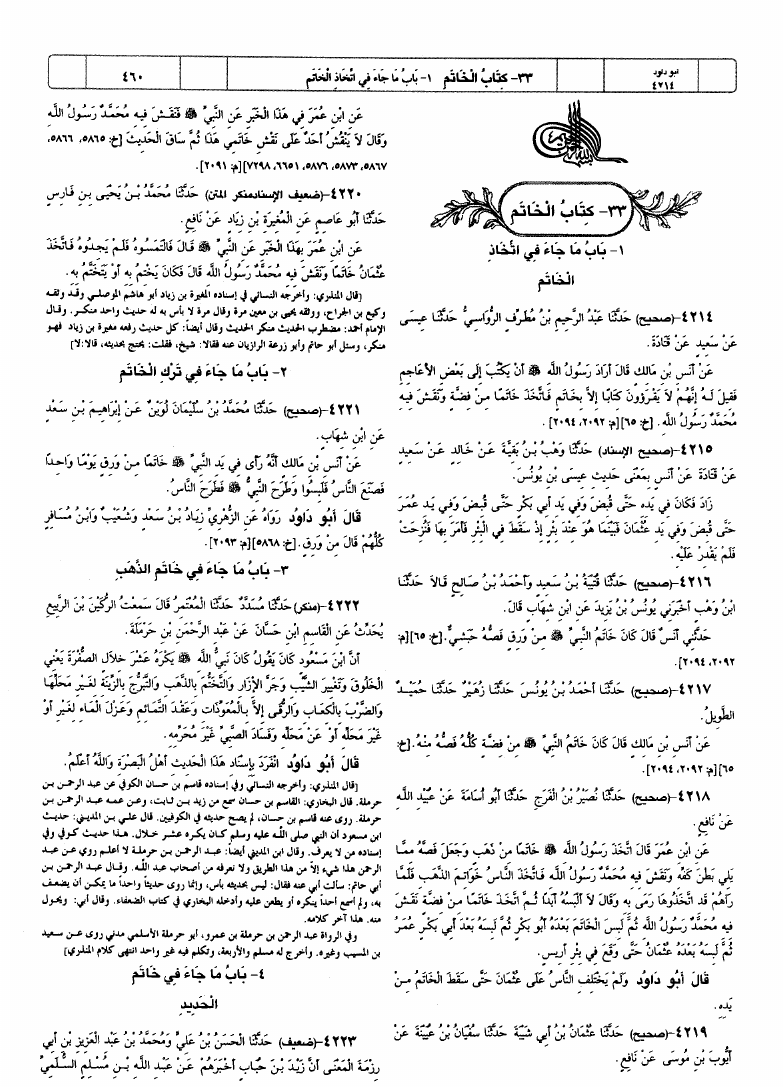 ابو داود
٤٢١٤
٣٣- كِتَابُ الْخَاتَم ١- بَابُ مَا جَاءَ فِي اتِّخَاذِ الْخَاتَمِ
٤٦٠
٣٣- كِتَابُ الْخَاتَم
١- بَابُ مَا جَاءَ فِي اتِّخَاذِ
الْخَاتَمِ
٤٢١٤-(صحيح) حَدَّثَنَا عَبْدُ الرَّحِيمِ بْنُ مُطَرِّفٍ الرُّوَاسِيُّ حَدَّثَنَا عِيسَى
عَنْ سَعِيدٍ عَنْ قَتَادَةَ.
عَنْ أَنَسِ بْنِ مَالِكٍ قَالَ أَرَادَ رَسُولُ اللَّهِ ﷺ أَنْ يَكْتُبَ إِلَى بَعْضِ الأَعَاجِمِ
فَقِيلَ لَهُ إِنَّهُمْ لاَ يَقْرَؤُونَ كِتَابًا إِلاَّ بِخَاتَمٍ فَاتَّخَذَ خَاتَمًا مِنْ فِضَّةٍ وَنَقَشَ فِيهِ
مُحَمَّدٌ رَسُولُ اللَّهِ. [خ: ٦٥][م: ٢٠٩٢، ٢٠٩٤] .
٤٢١٥-(صحيح الإسناد) حَدَّثَنَا وَهْبُ بْنُ بَقِيَّةَ عَنْ خَالِدٍ عَنْ سَعِيدٍ
عَنْ قَتَادَةَ عَنْ أَنَسٍ بِمَعْنَى حَدِيثِ عِيسَى بْنِ يُونُسَ.
زَادَ فَكَانَ فِي يَدِهِ حَتَّى قُبِضَ وَفِي يَدِ أَبِي بَكْرٍ حَتَّى قُبِضَ وَفِي يَدِ عُمَرَ
حَتَّى قُبِضَ وَفِي يَدِ عُثْمَانَ فَبَيْنَمَا هُوَ عِنْدَ بِئْرٍ إِذْ سَقَطَ فِي الْبِئْرِ فَأَمَرَ بِهَا فَنُزِحَتْ
فَلَمْ يَقْدِرْ عَلَيْهِ.
٤٢١٦-(صحيح) حَدَّثَنَا قُتَيْبَةُ بْنُ سَعِيدٍ وَأَحْمَدُ بْنُ صَالِحٍ قَالاَ حَدَّثَنَا
ابْنُ وَهْبٍ أَخْبَرَنِي يُونُسُ بْنُ يَزِيدَ عَنِ ابْنِ شِهَابٍ قَالَ.
حَدَّثَنِي أَنَسٌ قَالَ كَانَ خَاتَمُ النَّبِيِّ ﷺ مِنْ وَرِقٍ فَصُّهُ حَبَشِيٌّ.[خ: ٦٥][م:
٢٠٩٢، ٢٠٩٤].
٤٢١٧-(صحيح) حَدَّثَنَا أَحْمَدُ بْنُ يُونُسَ حَدَّثَنَا زُهَيْرٌ حَدَّثَنَا حُمَيْدٌ
الطَّوِيلُ.
عَنْ أَنَسِ بْنِ مَالِكٍ قَالَ كَانَ خَاتَمُ النَّبِيِّ ﷺ مِنْ فِضَّةٍ كُلُّهُ فَصُّهُ مِنْهُ.[خ:
٦٥][م: ٢٠٩٢، ٢٠٩٤].
٤٢١٨-(صحيح) حَدَّثَنَا نُصَيْرُ بْنُ الْفَرَجِ حَدَّثَنَا أَبُو أُسَامَةَ عَنْ عُبَيْدِ اللَّهِ
عَنْ نَافِعٍ.
عَنِ ابْنِ عُمَرَ قَالَ اتَّخَذَ رَسُولُ اللَّهِ ﷺ خَاتَمًا مِنْ ذَهَبٍ وَجَعَلَ فَصَّهُ مِمَّا
يَلِي بَطْنَ كَفِّهِ وَنَقَشَ فِيهِ مُحَمَّدٌ رَسُولُ اللَّهِ فَاتَّخَذَ النَّاسُ خَوَاتِمَ الذَّهَبِ فَلَمَّا
رَآهُمْ قَدِ اتَّخَذُوهَا رَمَى بِهِ وَقَالَ لاَ أَلْبَسُهُ أَبَدًا ثُمَّ اتَّخَذَ خَاتَمًا مِنْ فِضَّةٍ نَقَشَ
فِيهِ مُحَمَّدٌ رَسُولُ اللَّهِ ثُمَّ لَبِسَ الْخَاتَمَ بَعْدَهُ أَبُو بَكْرٍ ثُمَّ لَبِسَهُ بَعْدَ أَبِي بَكْرٍ عُمَرُ
ثُمَّ لَبِسَهُ بَعْدَهُ عُثْمَانُ حَتَّى وَقَعَ فِي بِئْرِ أَرِيسَ.
قَالَ أَبُو دَاوُد وَلَمْ يَخْتَلِفِ النَّاسُ عَلَى عُثْمَانَ حَتَّى سَقَطَ الْخَاتَمُ مِنْ
يَدِهِ.
٤٢١٩-(صحيح) حَدَّثَنَا عُثْمَانُ بْنُ أَبِي شَيْبَةَ حَدَّثَنَا سُفْيَانُ بْنُ عُيَيْنَةَ عَنْ
أَيُّوبَ بْنِ مُوسَى عَنْ نَافِعٍ.
عَنِ ابْنِ عُمَرَ فِي هَذَا الْخَبَرِ عَنِ النَّبِيِّ ﷺ فَنَقَشَ فِيهِ مُحَمَّدٌ رَسُولُ اللَّهِ
وَقَالَ لاَ يَنْقُشُ أَحَدٌ عَلَى نَقْشِ خَاتَمِي هَذَا ثُمَّ سَاقَ الْحَدِيثَ [خ: ٥٨٦٥، ٥٨٦٦،
٥٨٦٧، ٥٨٧٣، ٥٨٧٦، ٦٦٥١، ٧٢٩٨][م: ٢٠٩١].
٤٢٢٠-(ضعيف الإسنادمنكر المتن) حَدَّثَنَا مُحَمَّدُ بْنُ يَحْيَى بْنِ فَارِسٍ
حَدَّثَنَا أَبُو عَاصِمٍ عَنِ الْمُغِيرَةِ بْنِ زِيَادٍ عَنْ نَافِعٍ.
عَنِ ابْنِ عُمَرَ بِهَذَا الْخَبَرِ عَنِ النَّبِيِّ ﷺ قَالَ فَالْتَمَسُوهُ فَلَمْ يَجِدُوهُ فَاتَّخَذَ
عُثْمَانُ خَاتَمًا وَنَقَشَ فِيهِ مُحَمَّدٌ رَسُولُ اللَّهِ قَالَ فَكَانَ يَخْتِمُ بِهِ أَوْ يَتَخَتَّمُ بِهِ.
[قال المنذري: وأخرجه النسائي في إسناده المغيرة بن زياد أبو هاشم الموصلي وقد وثقه
وكيع بن الجراح، ووثقه يحيى بن معين مرة وقال مرة لا بأس به له حديث واحد منكر. وقال
الإمام أحمد: مضطرب الحديث منكر الحديث وقال أيضاً: كل حديث رفعه مغيرة بن زياد فهو
منكر، وسئل أبو حاتم وأبو زرعة الرازيان عنه فقالا: شيخ، فقلت: يحتج بحديثه، قالا:لا]
٢- بَابُ مَا جَاءَ فِي تَرْكِ الْخَاتَمِ
٤٢٢١-(صحيح) حَدَّثَنَا مُحَمَّدُ بْنُ سُلَيْمَانَ لُوَيْنٌ عَنْ إِبْرَاهِيمَ بْنِ سَعْدٍ
عَنِ ابْنِ شِهَابٍ.
عَنْ أَنَسِ بْنِ مَالِكٍ أَنَّهُ رَأَى فِي يَدِ النَّبِيِّ ﷺ خَاتَمًا مِنْ وَرِقٍ يَوْمًا وَاحِدًا
فَصَنَعَ النَّاسُ فَلَبِسُوا وَطَرَحَ النَّبِيُّ ﷺ فَطَرَحَ النَّاسُ.
قَالَ أَبُو دَاوُد رَوَاهُ عَنِ الزُّهْرِيِّ زِيَادُ بْنُ سَعْدٍ وَشُعَيْبٌ وَابْنُ مُسَافِرٍ
كُلُّهُمْ قَالَ مِنْ وَرِقٍ.[خ: ٥٨٦٨][م: ٢٠٩٣].
٣- بَابُ مَا جَاءَ فِي خَاتَمِ الذَّهَبِ
٤٢٢٢-(منكر) حَدَّثَنَا مُسَدَّدٌ حَدَّثَنَا الْمُعْتَمِرُ قَالَ سَمِعْتُ الرُّكَيْنَ بْنَ الرَّبِيعِ
يُحَدِّثُ عَنِ الْقَاسِمِ ابْنِ حَسَّانَ عَنْ عَبْدِ الرَّحْمَنِ بْنِ حَرْمَلَةَ.
أَنَّ ابْنَ مَسْعُودٍ كَانَ يَقُولُ كَانَ نَبِيُّ اللَّهِ ﷺ يَكْرَهُ عَشْرَ خِلاَلٍ الصُّفْرَةَ يَعْنِي
الْخَلُوقَ وَتَغْيِيرَ الشَّيْبِ وَجَرَّ الإِزَارِ وَالتَّخَتُّمَ بِالذَّهَبِ وَالتَّبَرُّجَ بِالزِّينَةِ لِغَيْرِ مَحَلِّهَا
وَالضَّرْبَ بِالْكِعَابِ وَالرُّقَى إِلاَّ بِالْمُعَوِّذَاتِ وَعَقْدَ التَّمَائِمِ وَعَزْلَ الْمَاءِ لِغَيْرِ أَوْ
غَيْرَ مَحَلِّهِ أَوْ عَنْ مَحَلِّهِ وَفَسَادَ الصَّبِيِّ غَيْرَ مُحَرِّمِهِ.
قَالَ أَبُو دَاوُد انْفَرَدَ بِإِسْنَادِ هَذَا الْحَدِيثِ أَهْلُ الْبَصْرَةِ وَاللَّهُ أَعْلَمُ.
[قال المنذري: وأخرجه النسائي وفي إسناده قاسم بن حسان الكوفي عن عبد الرحمن بن
حرملة. قال البخاري: القاسم بن حسان سمع من زيد بن ثابت، وعن عمه عبد الرحمن بن
حرملة. روى عنه قاسم بن حسان، لم يصح حديثه في الكوفيين. قال علي بن المديني: حديث
ابن مسعود أن النبي صلى الله عليه وسلم كان يكره عشر خلال. هذا حديث كوفي وفي
إسناده من لا يعرف. وقال ابن المديني أيضاً: عبد الرحمن بن حرملة لا أعلم روي عن عبد
الرحمن هذا شيء إلاّ من هذا الطريق ولا نعرفه من أصحاب عبد اللّه. وقال عبد الرحمن بن
أبي حاتم: سألت أبي عنه فقال: ليس بحديثه بأس، وإنما روى حديثاً واحداً ما يمكن أن يضعف
به، ولم أسمع أحداً ينكره أو يطعن عليه وأدخله البخاري في كتاب الضعفاء. وقال أبي: ويحول
منه. هذا آخر كلامه.
وفي الرواة عبد الرحمن بن حرملة بن عمرو، أبو حرملة الأسلمي مدني روى عن سعيد
بن المسيب وغيره. وأخرج له مسلم والأربعة، وتكلم فيه غير واحد انتهى كلام المنذري]
٤- بَابُ مَا جَاءَ فِي خَاتَمِ
الْحَدِيدِ
٤٢٢٣-(ضعيف) حَدَّثَنَا الْحَسَنُ بْنُ عَلِيٍّ وَمُحَمَّدُ بْنُ عَبْدِ الْعَزِيزِ بْنِ أَبِي
رِزْمَةَ الْمَعْنَى أَنَّ زَيْدَ بْنَ حُبَابٍ أَخْبَرَهُمْ عَنْ عَبْدِ اللَّهِ بْنِ مُسْلِمٍ السُّلَمِيِّ